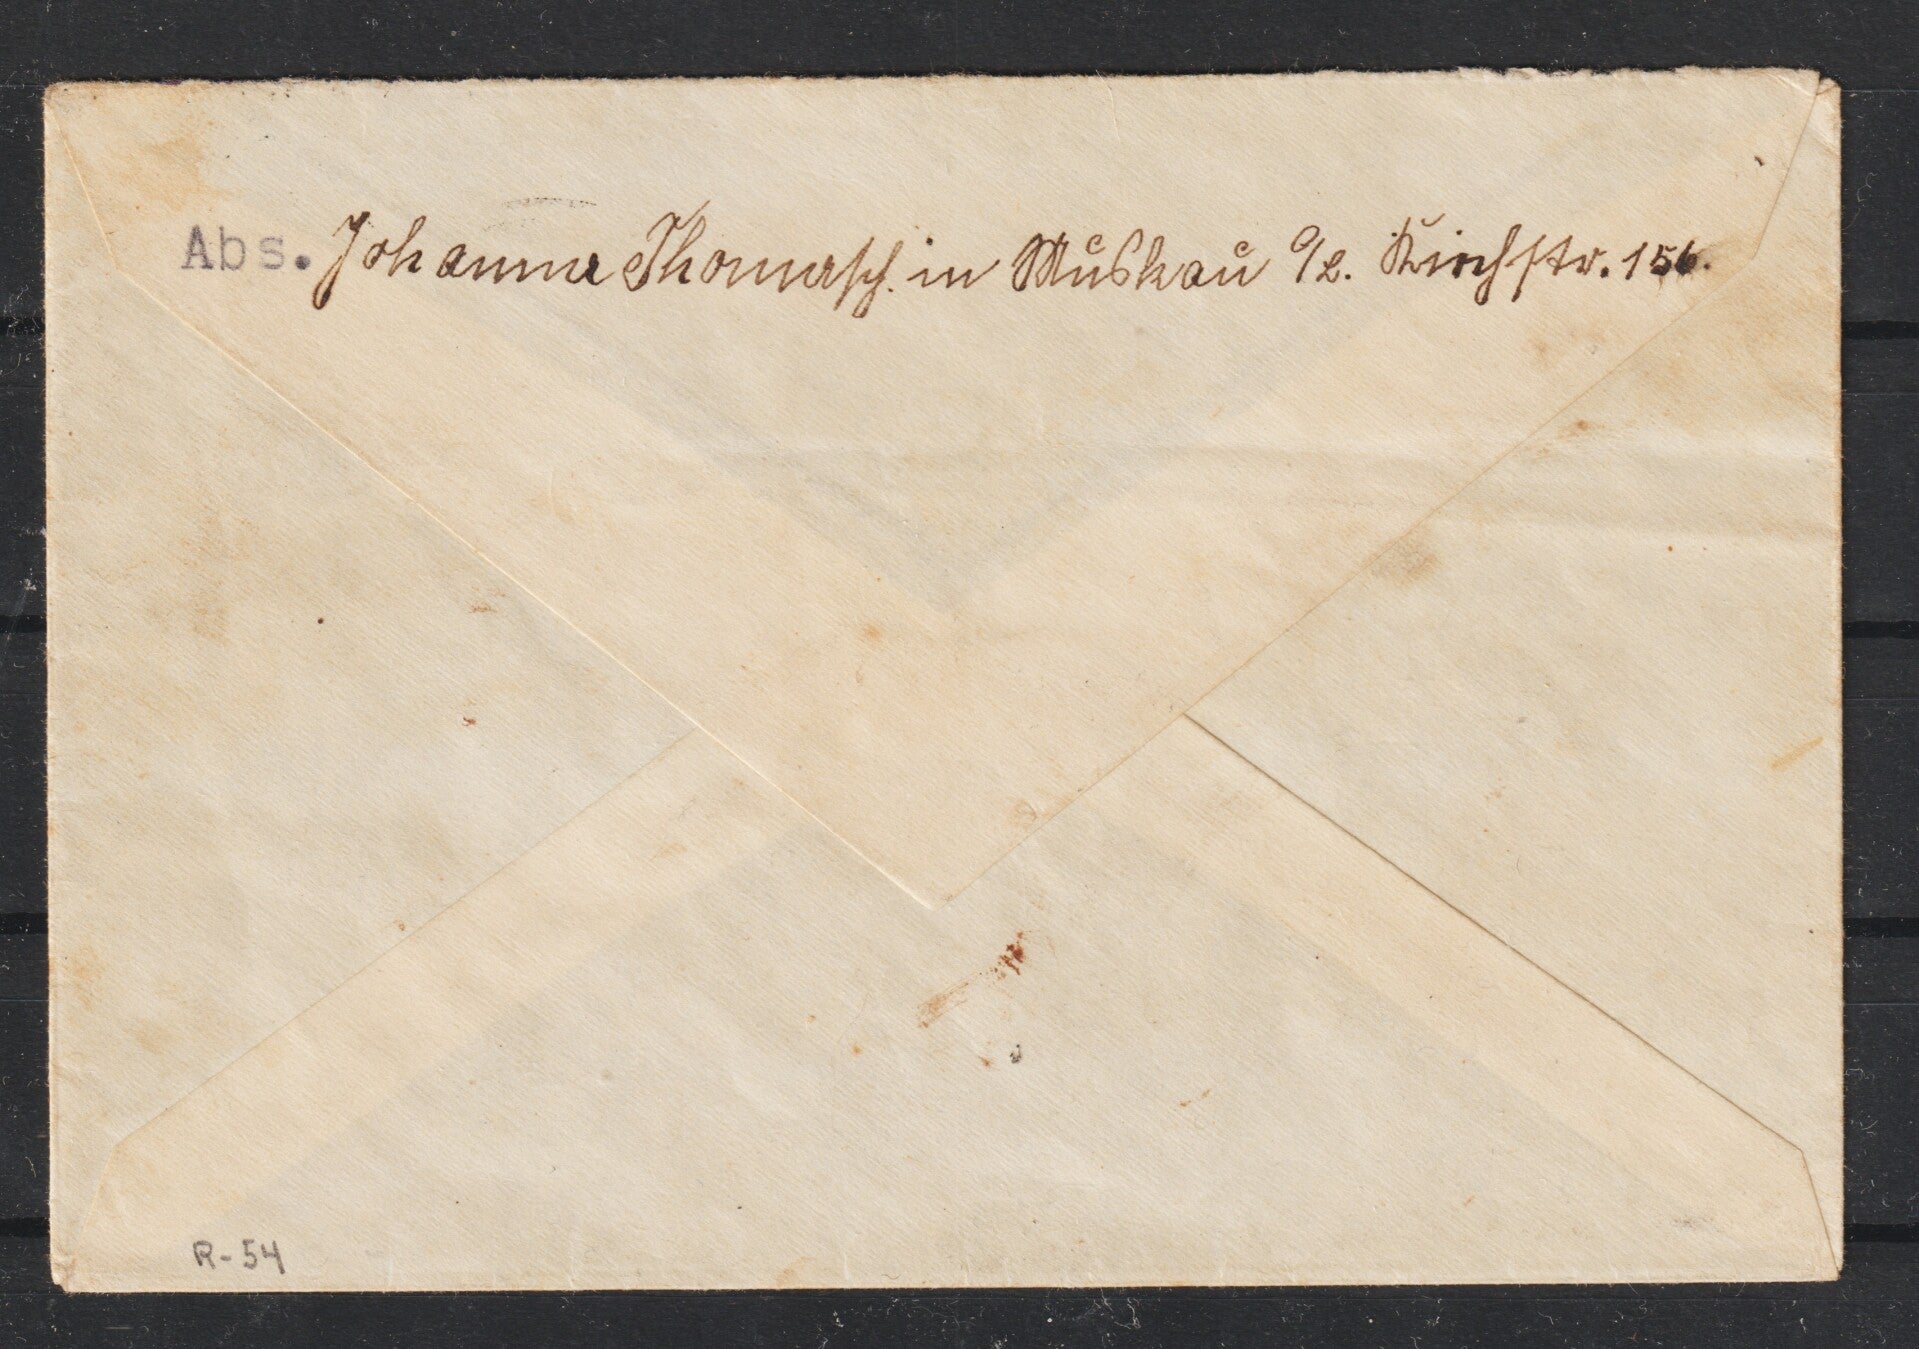 Abs. Johanna Thomasch. in Muskau O/L. Kirchstr. 156.
R-54